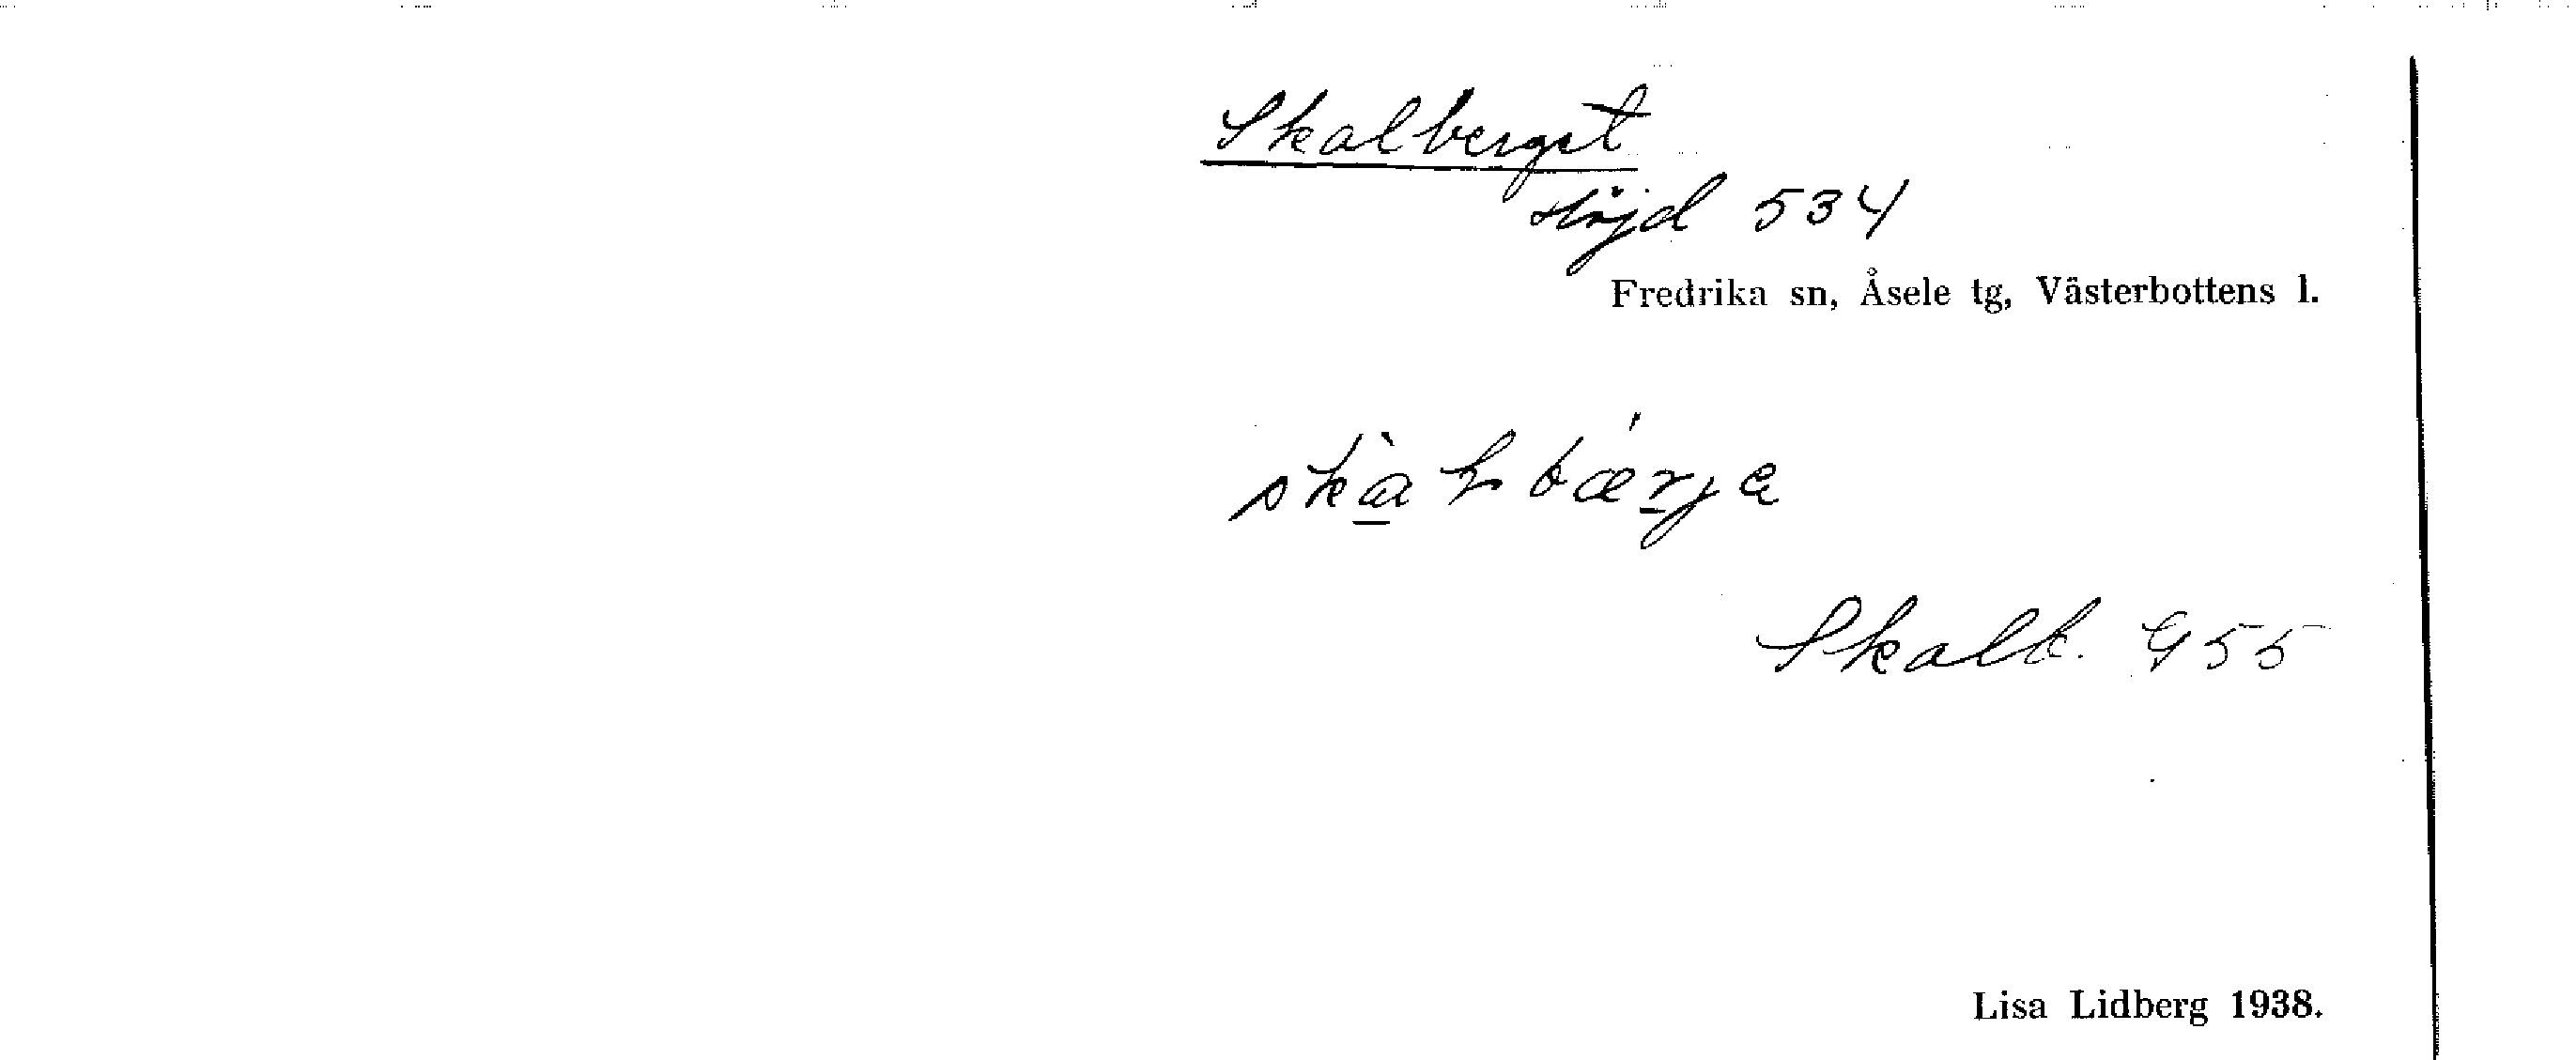 Skalberget
Höjd 534
Fredrika sn, Åsele tg, Västerbottens l.
Skalb. 455
Lisa Lidberg 1938.